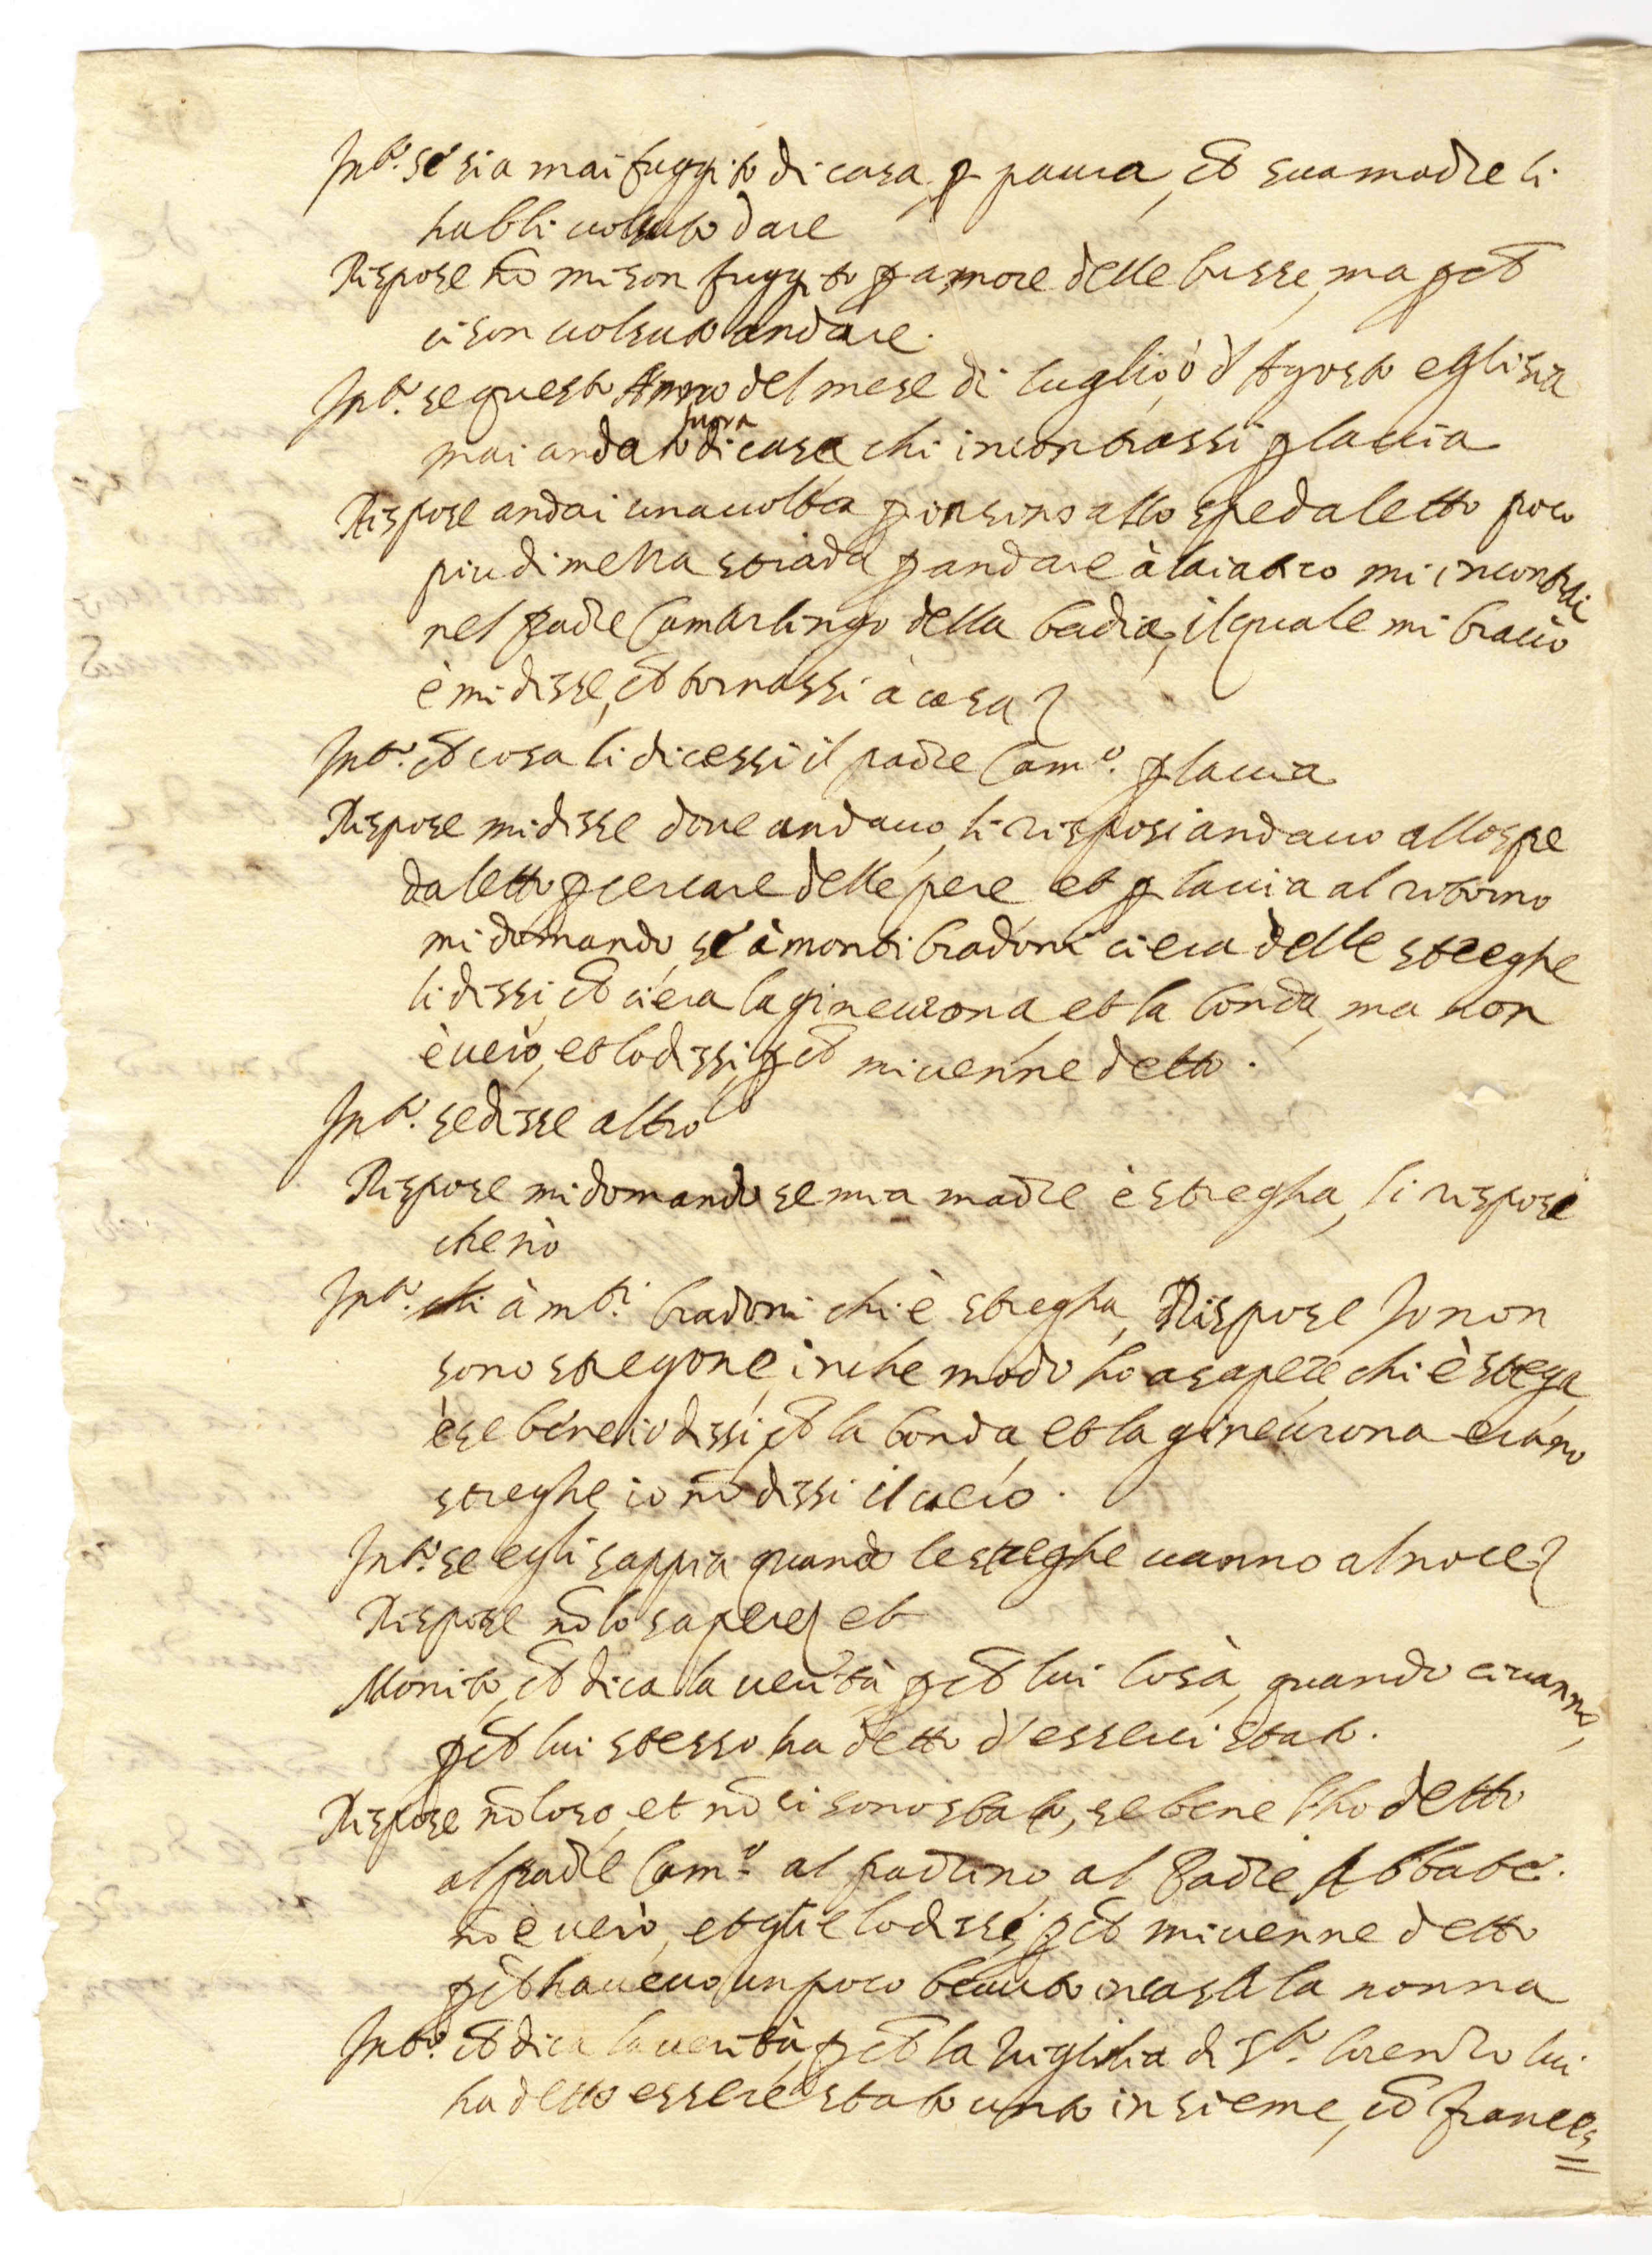 Int.o se sia mai fuggito di casa p paura, ch sua madre li
habbi volsuto dare
Rispose no mi son fuggito p amore delle busse, ma p ch
ci son volsuto andare.
Int.o se questo Anno del mese di luglio, ò d'Agosto egli sia
mai andato fuora di casa, chi incontrassi p la via
Rispose andai una volta p insino allo spedaletto poco
piu di mezza strada p andare à laiatico mi incontrai
nel padre Camarlingo della badia, il quale mi bracciò
è mi disse, ch tornassi à casa
Int.o ch cosa li dicessi il padre Cam.o p la via
Rispose mi disse dove andavo, li risposi andavo allo spe
daletto p cercare delle pere, et p la via al ritorno
mi domandò, se à monti bradoni ci era delle streghe
li dissi, ch ci era la ginevrona, et la bonda, ma non
è vero, et lo dissi, p ch mi venne detto.
Int.o se disse altro
Rispose mi domandò se mia madre è stregha, li rispose
che nò
Int.o chi à m.ti bradoni chi è stregha, Rispose Io non
sono stregone, in che modo ho a sapere chi è strega
è se bene io dissi, ch la bonda, et la ginevrona erano
streghe, io nō dissi il vero.
Int.o se egli sappia quando le streghe vanno al noce
Rispose nō lo sapere et
Monito, ch dica la verità, p ch lui lo sà, quando ci vanno,
p ch lui stesso ha detto d'esservi stato.
Rispose nō lo so, et nō ci sono stato, se bene l'ho detto
al padre Cam.o al padrino, al Padre Abbate.
nō è vero, et gli e lo dissi, p ch mi venne detto
p ch havevo un poco bevuto in casa la nonna
Int.o ch dica la verità, p ch la vigilia di S.to lorenzo lui
ha detto essere stato unto insieme, cō frances